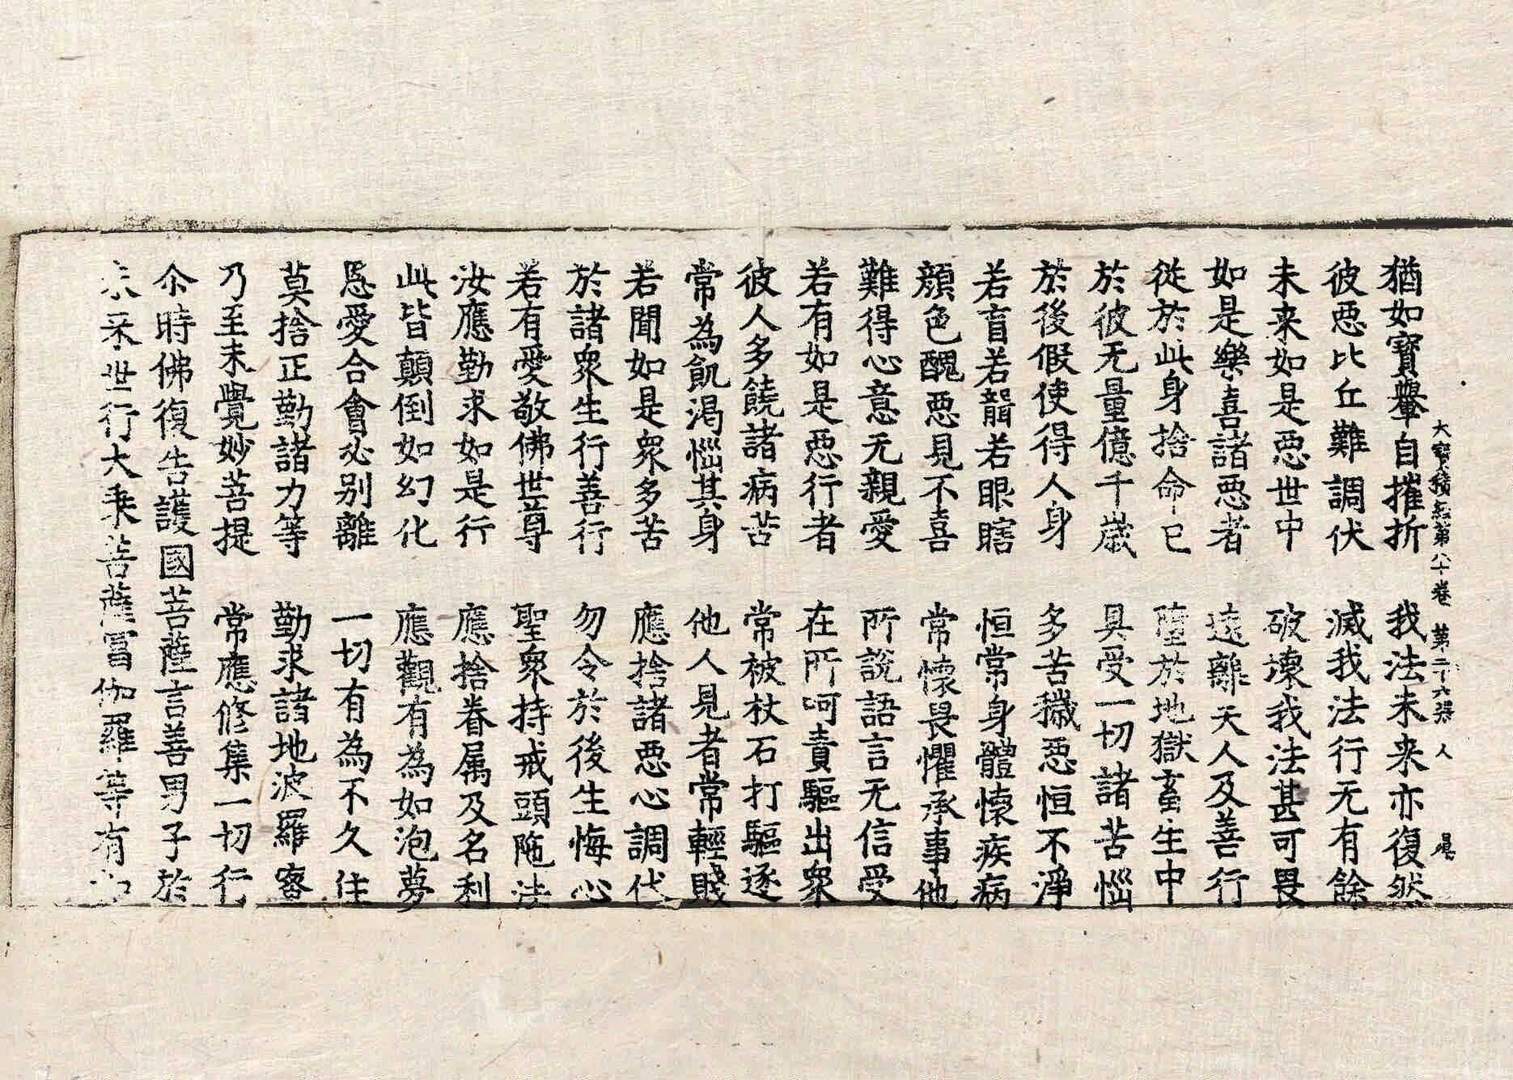 大寶積經第八十卷 第二十六張 人
猶如寶轝自摧折 我法未来亦復然
彼惡比丘難調伏 滅我法行无有餘
未来如是惡世中 破壞我法甚可畏
如是樂喜諸惡者 遠離天人及善行
從於此身捨命已 墮於地獄畜生中
於彼无量億千歲 具受一切諸苦惱
於後假使得人身 多苦穢惡恒不淨
若盲若聾若眼瞎 恒常身體懷疾病
顏色醜惡見不喜 常懷畏懼承事他
難得心意无親愛 所說語言无信受
若有如是惡行者 在所呵責驅出衆
彼人多饒諸病苦 常被杖石打驅逐
常為飢渴惱其身 他人見者常輕賤
若聞如是衆多苦 應捨諸惡心調伏
於諸衆生行善行 勿令於後生悔心
若有愛敬佛世尊 聖衆持戒頭陁法
汝應勤求如是行 應捨眷属及名利
此皆顛倒如幻化 應觀有為如泡夢
恩愛合會必别離 一切有為不久住
莫捨正勤諸力等 勤求諸地波羅蜜
乃至未覺妙菩提 常應修集一切行
尒時佛復告護國菩薩言善男子於
未来世行大乘菩薩富伽羅等有